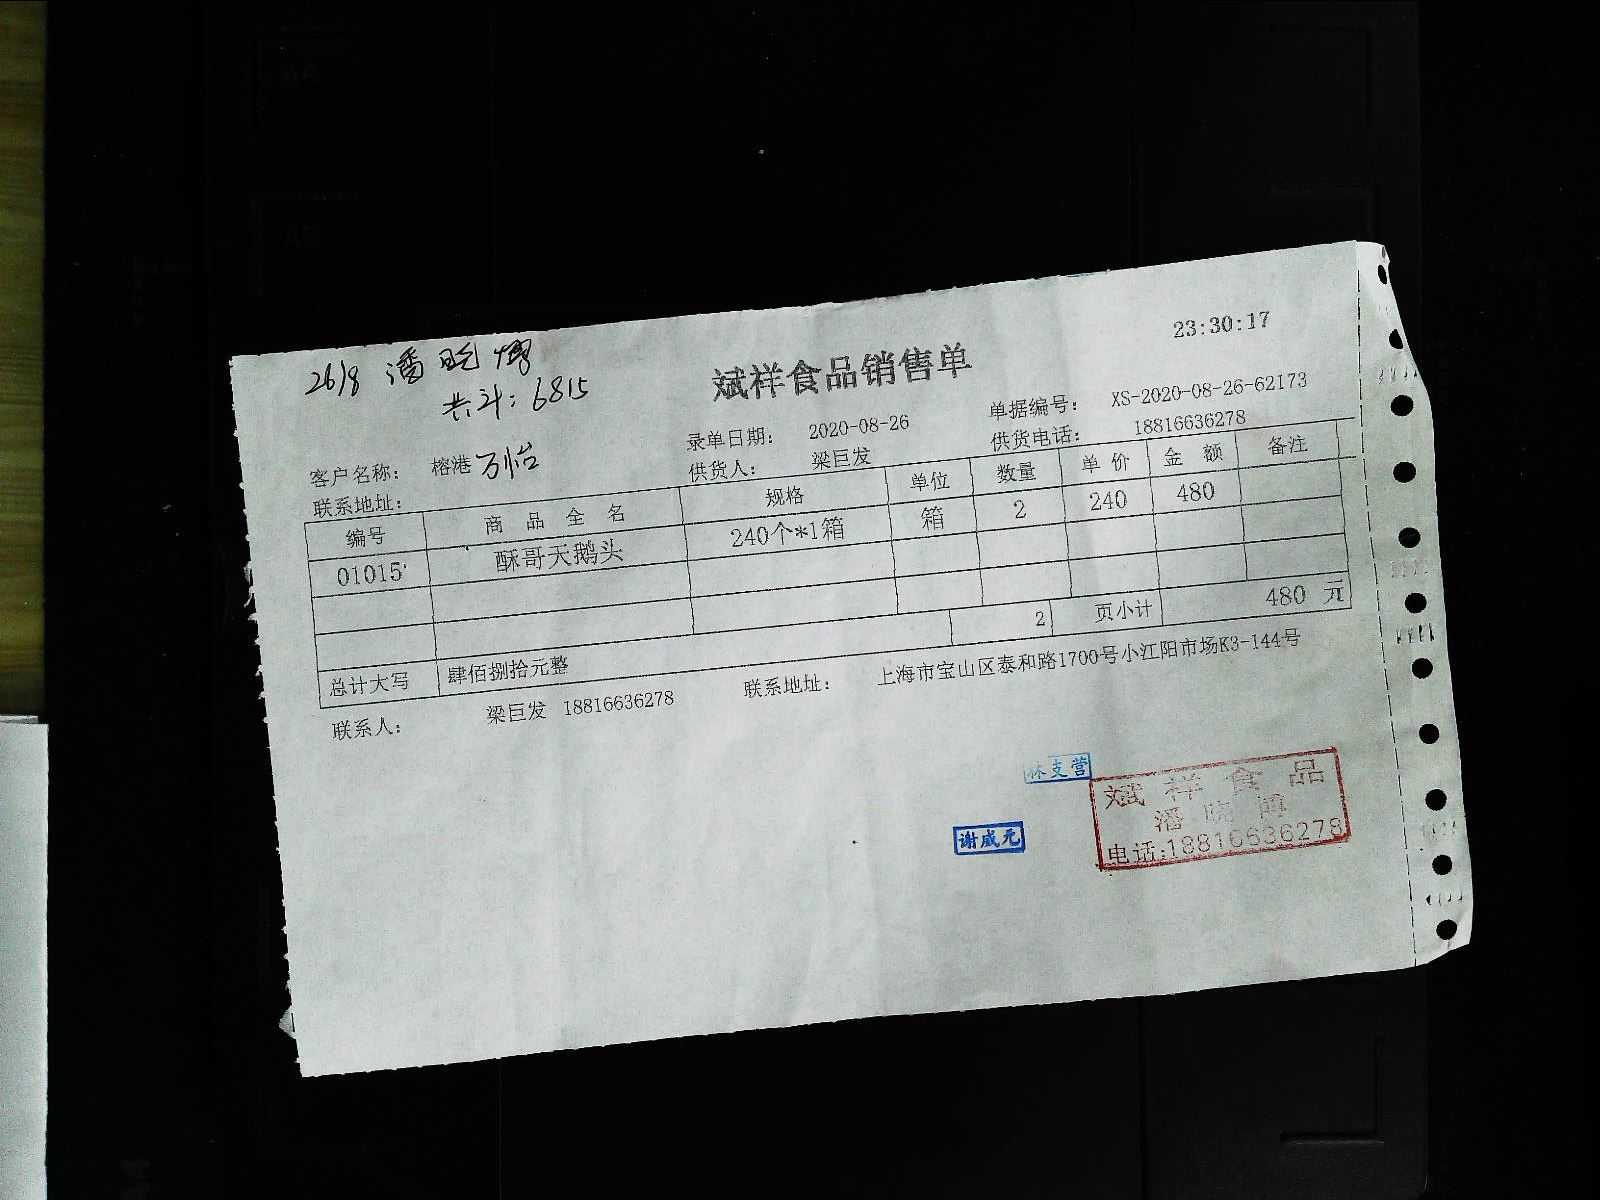 23:30:17
26/8 潘晓博
共计: 6815
斌祥食品销售单
录单日期: 2020-08-26 单据编号: XS-2020-08-26-62173
客户名称: 榕港 万怡 供货人: 梁巨发 供货电话: 18816636278
联系地址:
编号 商品全名 规格 单位 数量 单价 金额 备注
01015 酥哥天鹅头 240个*1箱 箱 2 240 480
2 页小计 480 元
总计大写 肆佰捌拾元整
联系人: 梁巨发 18816636278 联系地址: 上海市宝山区泰和路1700号小江阳市场K3-144号
林支营
谢成元
斌祥食品
潘晓博
电话:18816636278